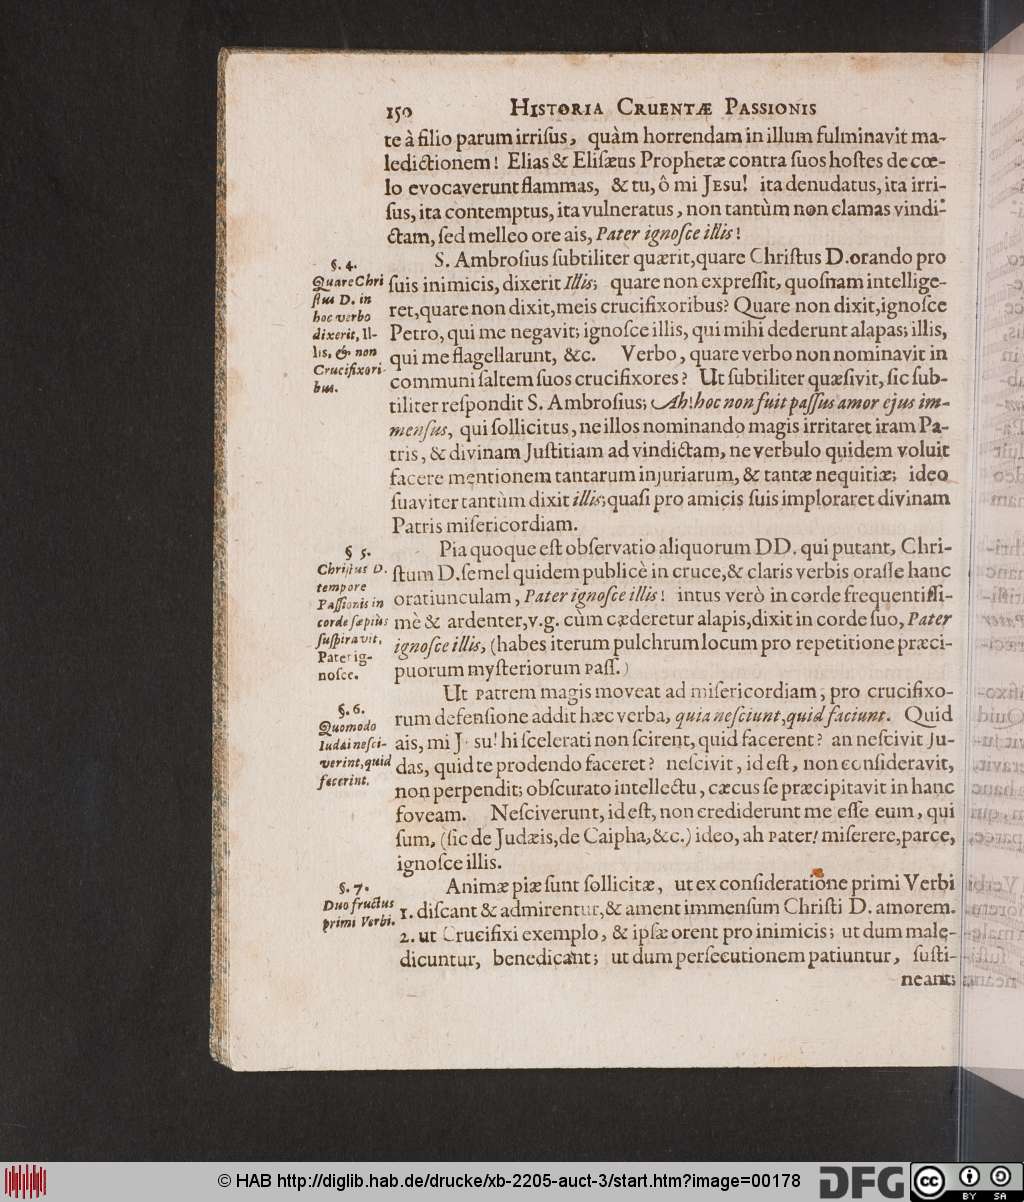 150 HISTORIA CRUENTÆ PASSIONIS
te à filio parum irriſus, quàm horrendam in illum fulminavit ma-
ledictionem! Elias & Eliſæus Prophetæ contra ſuos hoſtes de cœ-
lo evocaverunt flammas, & tu, ô mi JEsu! ita denudatus, ita irri-
ſus, ita contemptus, ita vulneratus, non tantùm non clamas vindi-
ctam, ſed melleo ore ais, Pater ignoſce illis!
§. 4.
Quare Chri
ſtus D. in
hoc verbo
dixerit, Il-
lis, & non
Crucifixori-
bus.
S. Ambroſius ſubtiliter quærit, quare Chriſtus D. orando pro
ſuis inimicis, dixerit Illis; quare non expreſſit, quoſnam intellige-
ret, quare non dixit, meis crucifixoribus? Quare non dixit, ignoſce
Petro, qui me negavit; ignoſce illis, qui mihi dederunt alapas; illis,
qui me flagellarunt, &c. Verbo, quare verbo non nominavit in
communi ſaltem ſuos crucifixores? Ut ſubtiliter quæſivit, ſic ſub-
tiliter reſpondit S. Ambroſius; Ah! hoc non fuit paſſus amor ejus im-
menſus, qui ſollicitus, ne illos nominando magis irritaret iram Pa-
tris, & divinam Juſtitiam ad vindictam, ne verbulo quidem voluit
facere mentionem tantarum injuriarum, & tantæ nequitiæ; ideo
ſuaviter tantùm dixit illis; quaſi pro amicis ſuis imploraret divinam
Patris miſericordiam.
§ 5.
Chriſtus D.
tempore
Paſſionis in
corde ſæpiùs
ſuſpiravit,
Pater ig-
noſce.
Pia quoque eſt obſervatio aliquorum DD. qui putant, Chri-
ſtum D. ſemel quidem publicè in cruce, & claris verbis oraſſe hanc
oratiunculam, Pater ignoſce illis! intus verò in corde frequentiſſi-
mè & ardenter, v.g. cùm cæderetur alapis, dixit in corde ſuo, Pater
ignoſce illis, (habes iterum pulchrum locum pro repetitione præci-
puorum myſteriorum Paſſ.)
§. 6.
Quomodo
Iudæi neſci-
verint, quid
fecerint.
Ut Patrem magis moveat ad miſericordiam, pro crucifixo-
rum defenſione addit hæc verba, quia neſciunt, quid faciunt. Quid
ais, mi J su! hi ſcelerati non ſcirent, quid facerent? an neſcivit Ju-
das, quid te prodendo faceret? neſcivit, id eſt, non conſideravit,
non perpendit; obſcurato intellectu, cæcus ſe præcipitavit in hanc
foveam. Neſciverunt, id eſt, non crediderunt me eſſe eum, qui
ſum, (ſic de Judæis, de Caipha, &c.) ideo, ah Pater! miſerere, parce,
ignoſce illis.
§. 7.
Duo fructus
primi Verbi.
Animæ piæ ſunt ſollicitæ, ut ex conſideratione primi Verbi
1. diſcant & admirentur, & ament immenſum Chriſti D. amorem.
2. ut Crucifixi exemplo, & ipſæ orent pro inimicis; ut dum male-
dicuntur, benedicant; ut dum perſecutionem patiuntur, ſuſti-
neant;
© HAB http://diglib.hab.de/drucke/xb-2205-auct-3/start.htm?image=00178
DFG
cc BY SA